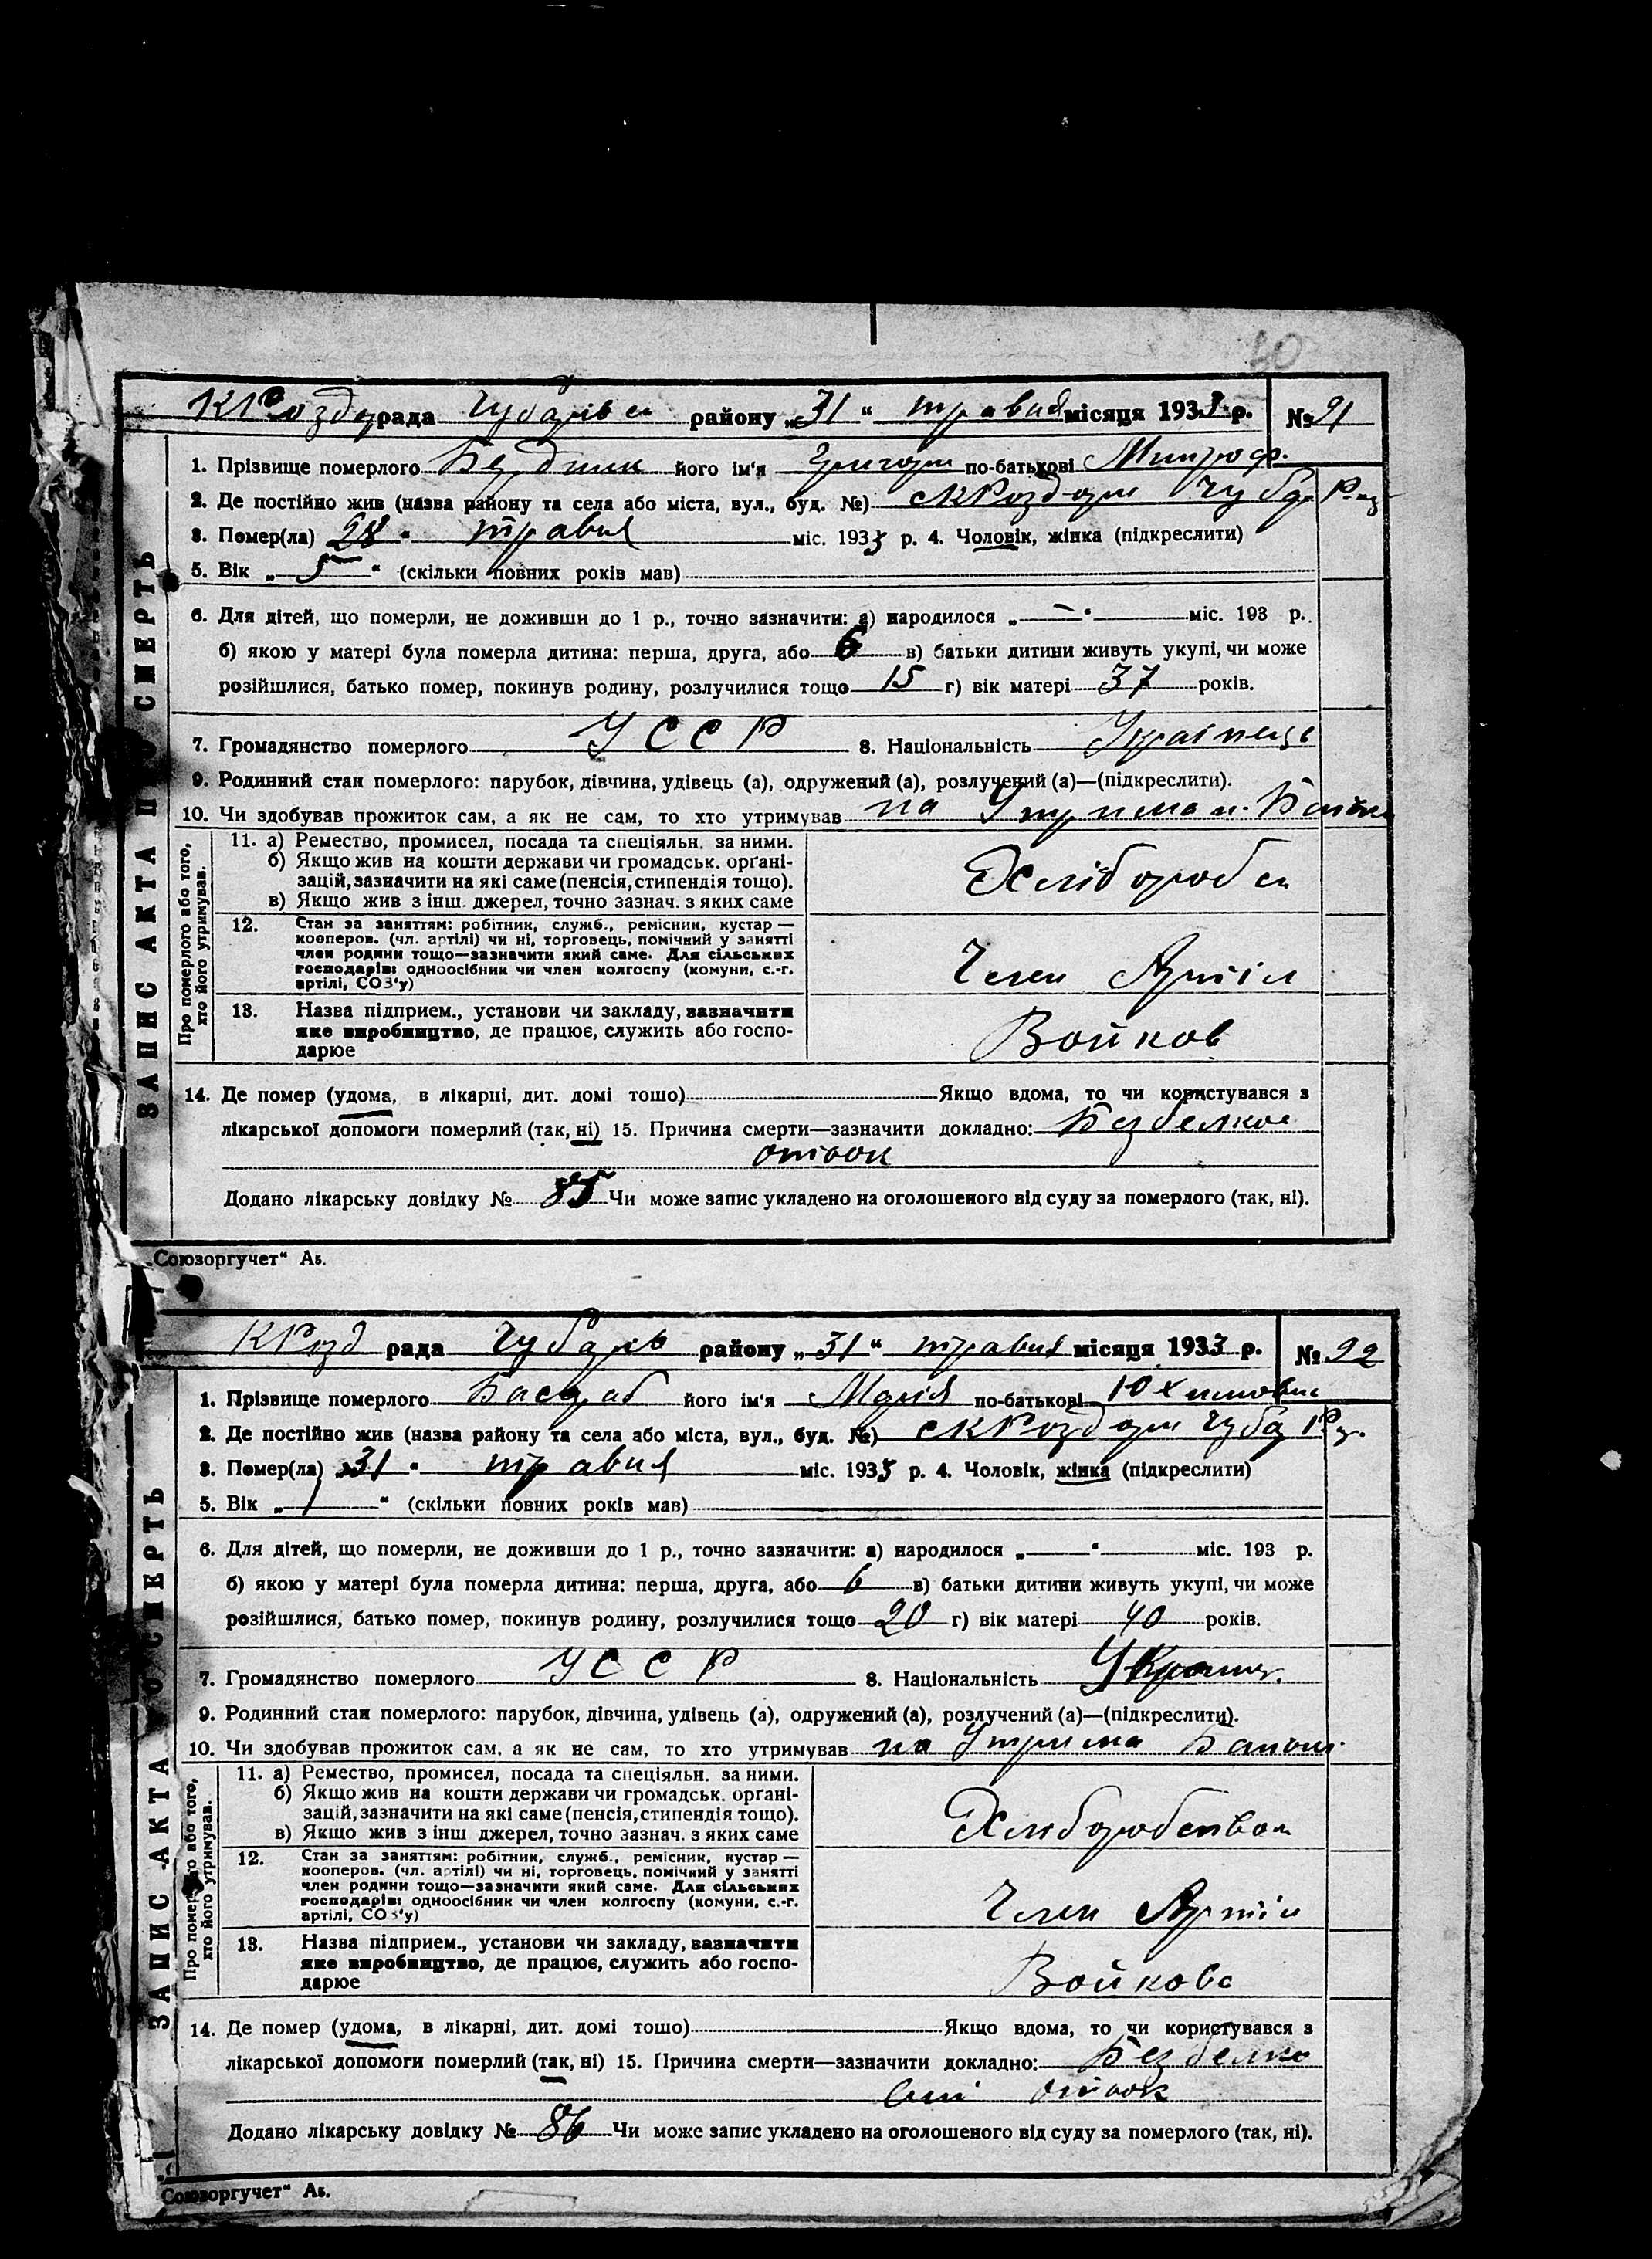 40
КРозд рада Чубарівсь району „31“ травня місяця 1933 р. № 91
1. Прізвище померлого його ім'я Григорій по-батькові Митроф.
2. Де постійно жив (назва району та села або міста, вул., буд. №) с КРоздори Чубар Р-ну
3. Помер(ла) 28 " травня міс. 1933 р. 4. Чоловік, жінка (підкреслити)
5. Вік „ 5 “ (скільки повних років мав)
6. Для дітей, що померли, не доживши до 1 р., точно зазначити: а) народилося „ — " міс. 193 р.
б) якою у матері була померла дитина: перша, друга, або 6 в) батьки дитини живуть укупі, чи може
розійшлися, батько помер, покинув родину, розлучилися тощо 15 г) вік матері 37 років.
7. Громадянство померлого УССР 8. Національність Українець
9. Родинний стан померлого: парубок, дівчина, удівець (а), одружений (а), розлучений (а)—(підкреслити).
10. Чи здобував прожиток сам, а як не сам, то хто утримував на Утриман. Батька
ЗАПИС АКТА ПРО СМЕРТЬ
Про померлого або того, хто його утримував.
11. а) Ремество, промисел, посада та спеціяльн. за ними.
б) Якщо жив на кошти держави чи громадськ. орґані-
зацій, зазначити на які саме (пенсія, стипендія тощо).
в) Якщо жив з інш. джерел, точно зазнач. з яких саме
Хліборобсь
12. Стан за заняттям: робітник, служб., ремісник, кустар —
кооперов. (чл. артілі) чи ні, торговець, помічний у занятті
член родини тощо—зазначити який саме. Для сільських
господарів: одноосібник чи член колгоспу (комуни, с.-г.
артілі, СОЗ'у)
Член Артіл
13. Назва підприєм., установи чи закладу, зазначити
яке виробництво, де працює, служить або госпо-
дарює
Войков
14. Де помер (удома, в лікарні, дит. домі тощо) Якщо вдома, то чи користувався з
лікарської допомоги померлий (так, ні) 15. Причина смерти—зазначити докладно: Безбелкое
отьок
Додано лікарську довідку № 85 Чи може запис укладено на оголошеного від суду за померлого (так, ні).
„Союзоргучет“ Аь.
КРозд рада Чубарів району „31“ травня місяця 1933 р. № 92
1. Прізвище померлого Басараб його ім'я Марія по-батькові Юхимовна
2. Де постійно жив (назва району та села або міста, вул., буд. №) с КРоздори Чубар Р-ну.
3. Помер(ла) 31 " травня міс. 1933 р. 4. Чоловік, жінка (підкреслити)
5. Вік „ 1 “ (скільки повних років мав)
6. Для дітей, що померли, не доживши до 1 р., точно зазначити: а) народилося „ — " міс. 193 р.
б) якою у матері була померла дитина: перша, друга, або 6 в) батьки дитини живуть укупі, чи може
розійшлися, батько помер, покинув родину, розлучилися тощо 20 г) вік матері 40 років.
7. Громадянство померлого УССР 8. Національність Українц.
9. Родинний стан померлого: парубок, дівчина, удівець (а), одружений (а), розлучений (а)—(підкреслити).
10. Чи здобував прожиток сам, а як не сам, то хто утримував на Утрима Батьки
ЗАПИС АКТА ПРО СМЕРТЬ
Про померлого або того, хто його утримував.
11. а) Ремество, промисел, посада та спеціяльн. за ними.
б) Якщо жив на кошти держави чи громадськ. орґані-
зацій, зазначити на які саме (пенсія, стипендія тощо).
в) Якщо жив з інш джерел, точно зазнач. з яких саме
Хліборобством
12. Стан за заняттям: робітник, служб., ремісник, кустар —
кооперов. (чл. артілі) чи ні, торговець, помічний у занятті
член родини тощо—зазначити який саме. Для сільських
господарів: одноосібник чи член колгоспу (комуни, с.-г.
артілі, СОЗ'у)
Член Артіл
13. Назва підприєм., установи чи закладу, зазначити
яке виробництво, де працює, служить або госпо-
дарює
Войкова
14. Де помер (удома, в лікарні, дит. домі тощо) Якщо вдома, то чи користувався з
лікарської допомоги померлий (так, ні) 15. Причина смерти—зазначити докладно: Безбелко
вий отьок
Додано лікарську довідку № 86 Чи може запис укладено на оголошеного від суду за померлого (так, ні).
Союзоргучет“ Аь.